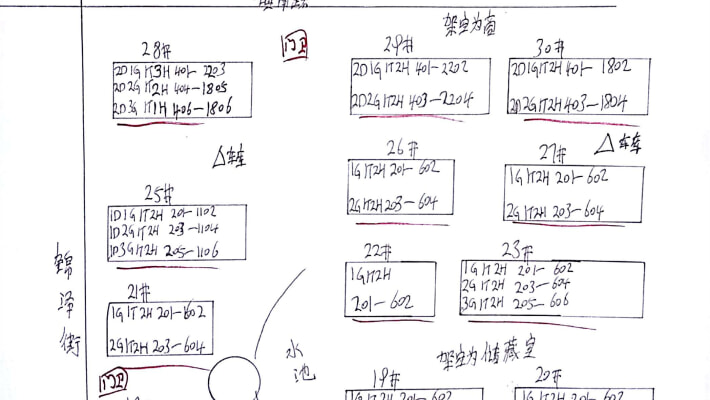 架空为商
门卫
28#
2D1G1T3H 401-2203
2D2G1T2H 404-1805
2D3G1T1H 406-1806
29#
2D1G1T2H 401-2202
2D2G1T2H 403-2204
30#
2D1G1T2H 401-1802
2D2G1T2H 403-1804
△车库
△车库
26#
1G1T2H 201-602
2G1T2H 203-604
27#
1G1T2H 201-602
2G1T2H 203-604
25#
1D1G1T2H 201-1102
1D2G1T2H 203-1104
1D3G1T2H 205-1106
22#
1G1T2H
201-602
23#
1G1T2H 201-602
2G1T2H 203-604
3G1T2H 205-606
锦泽街
21#
1G1T2H 201-602
2G1T2H 203-604
水池
架空为储藏室
门卫
19#
1G1T2H 201-602
20#
1G1T2H 201-602